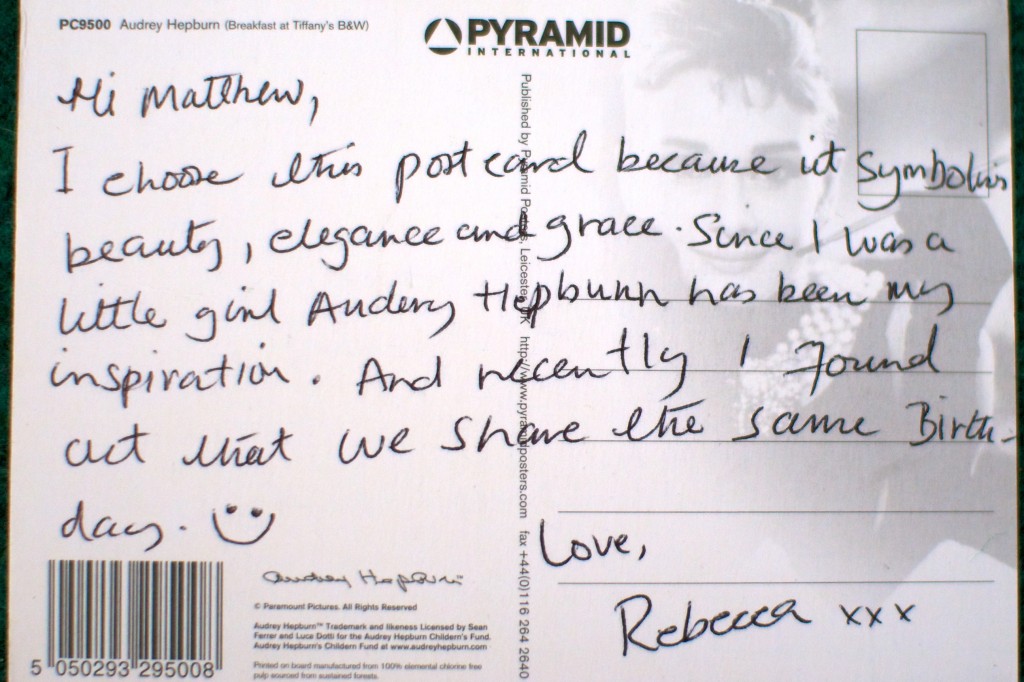 PC9500 Audrey Hepburn (Breakfast at Tiffany's B&W)
PYRAMID
INTERNATIONAL
Hi Matthew,
I choose this postcard because it symbolizis
beauty, elegance and grace. Since I was a
little girl Audery Hepburn has been my
inspiration. And recently I found
out that we share the same Birth-
day.
Love,
Rebecca xxx
Published by Pyramid Posters, Leicester, UK http://www.pyramidposters.com fax +44(0)116 264 2640
Audrey Hepburn
© Paramount Pictures. All Rights Reserved
Audrey Hepburn™ Trademark and likeness Licensed by Sean
Ferrer and Luca Dotti for the Audrey Hepburn Childern's Fund.
Audrey Hepburn's Childern Fund at www.audreyhepburn.com
Printed on board manufactured from 100% elemental chlorine free
pulp sourced from sustained forests.
5 050293 295008